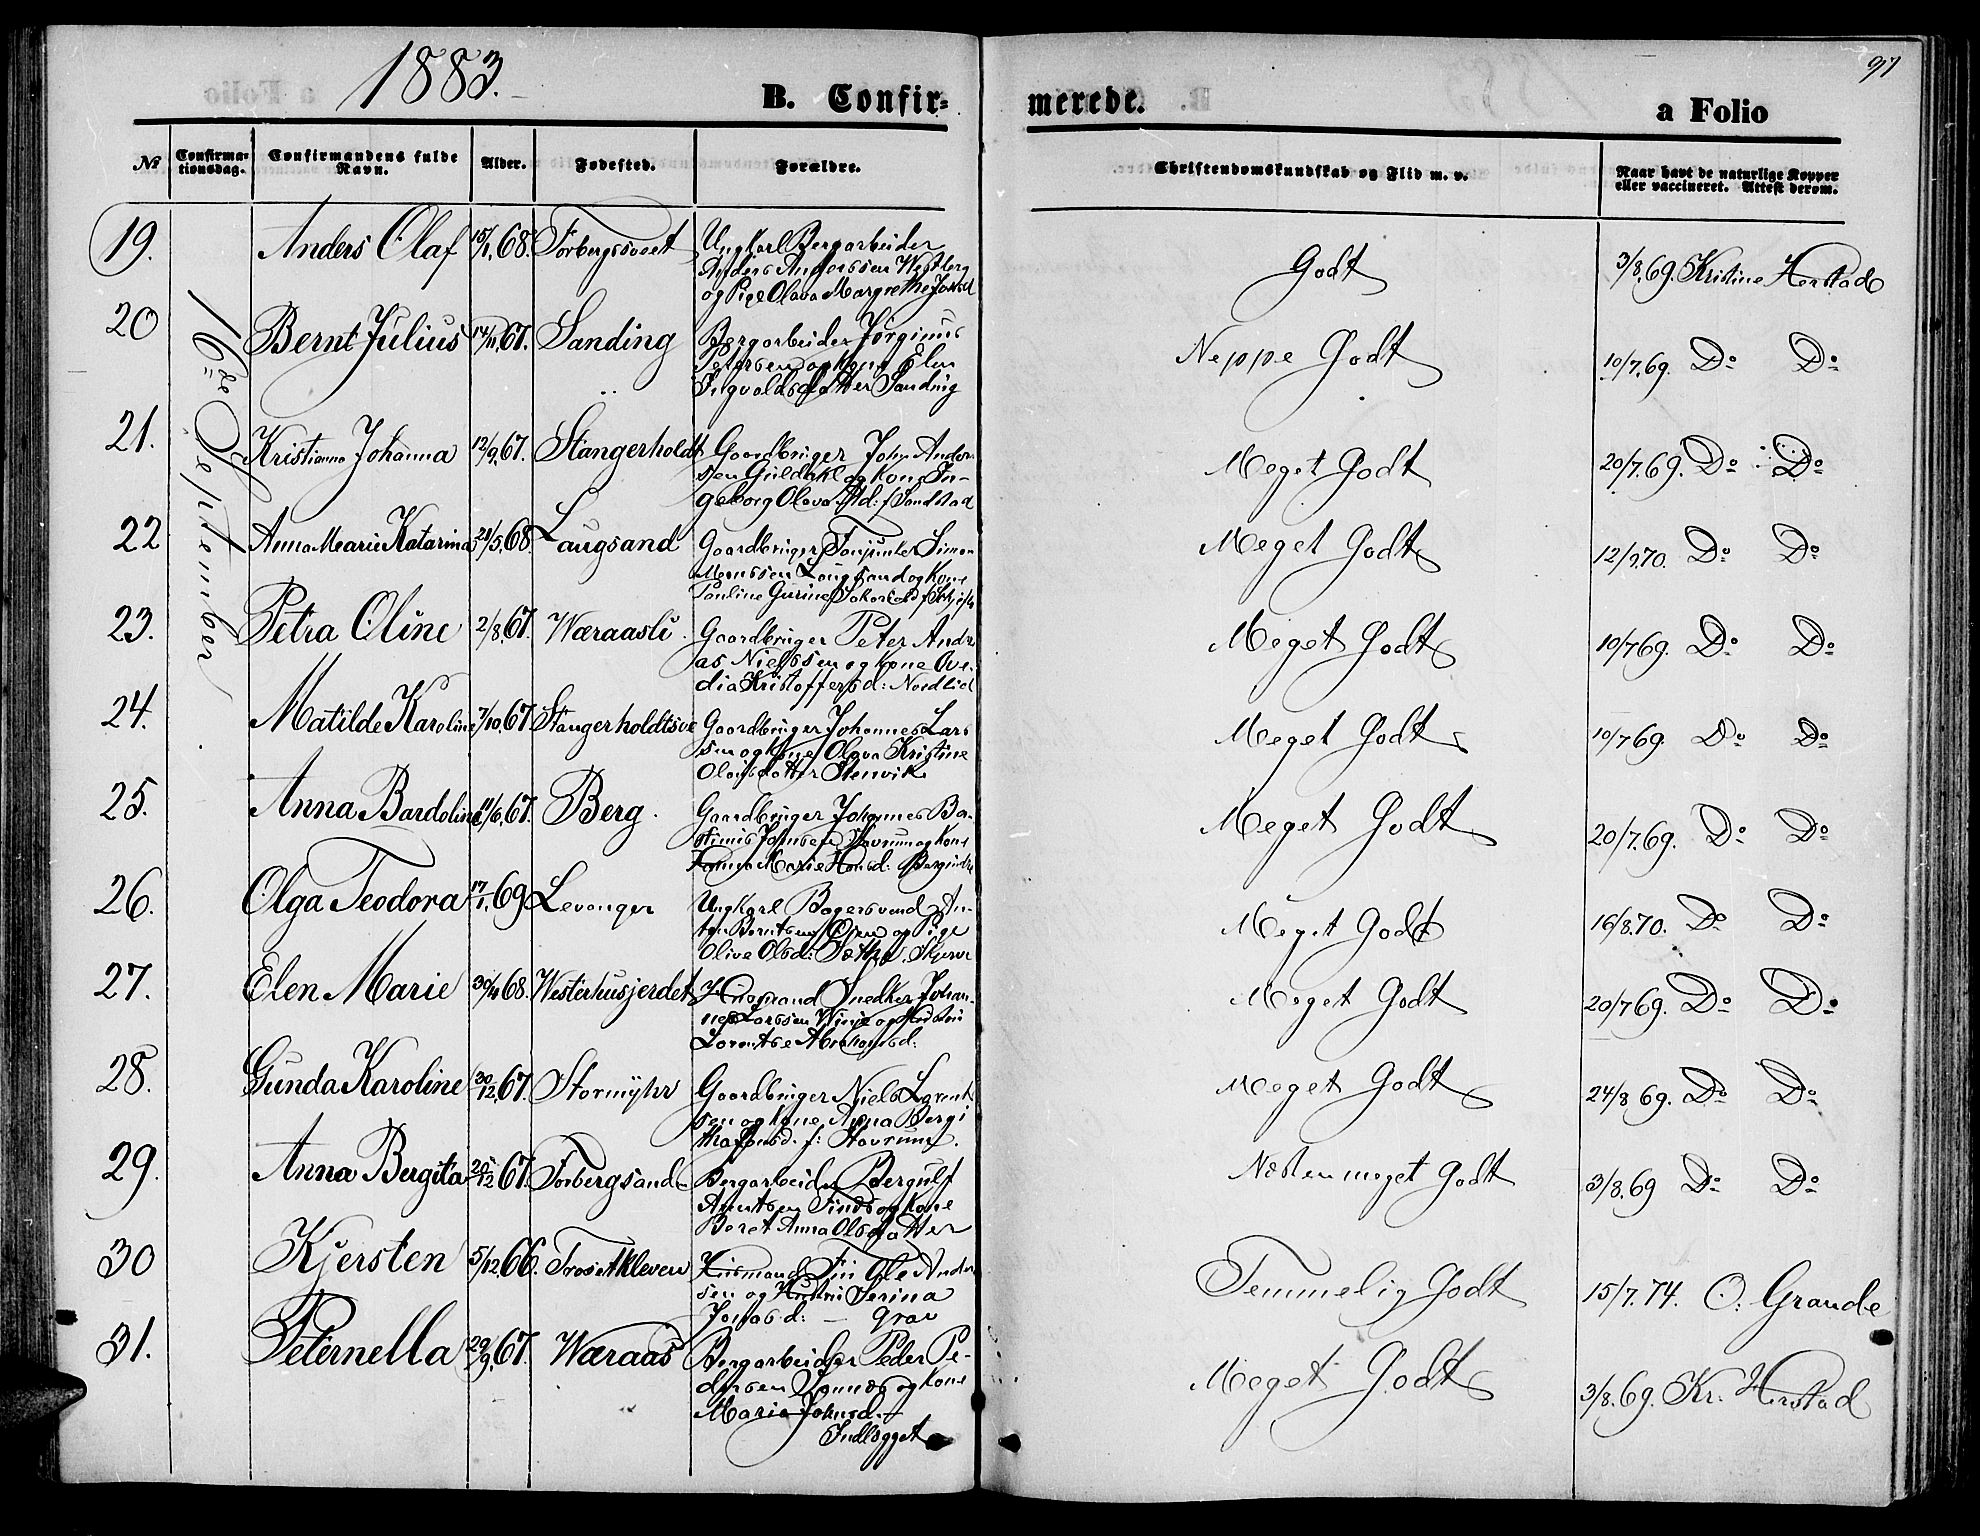 1883.
97
B. Confir-
merede.
a Folio
No
Confirma-
tionsdag.
Confirmandens fulde
Navn.
Alder.
Fødested.
Forældre.
Christendomskundskab og Flid m. v.
Naar havt de naturlige Kopper
eller vaccineret. Attest derom.
16de September
19. Anders Olaf 15/1 68. Forbergsveet
Ungkarl Bergarbeider
Anders Andorssen Westberg
og Pige Olava Margrethe
Godt
3/8.69. Kristine Herstad
20 Bernt Julius 14/11.67. Sanding
Bergarbeider Jørginus
Petersen og Kone Elen
Ingvoldsdatter Sanding
Neppe Godt
10/7.69. Do Do
21. Kristianna Johanna 12/9.67. Stangerholdt
Gaardbruger John Ander-
sen Guldahl og Kone In-
geborg Olava
Meget Godt
20/7.69. Do Do
22 Anna Marie Katarina 21/5.68 Laugsand
Gaardbruger Simon
Monssen Laugsand og Kone
Pauline Gurine
Meget Godt
12/9.70. Do Do
23. Petra Oline 2/8.67. Wæraasli
Gaardbruger Peter Andr
as Nielssen og Kone Ove-
dia Kristoffersd: Nordlid
Meget Godt
10/7 69. Do Do
24. Matilde Karoline 7/10.67. Stangerholdtsve
Gaardbruger Johannes Lars
sen og Kone Olava Kristine
Olausdatter Stenvik
Meget Godt
10/7 69. Do Do
25. Anna Bardoline 11/6.67. Berg.
Gaardbruger Johannes Ba-
stinus Johnsen Stavrum og Kone
Hanna Marie Hansd:
Meget Godt
20/7.69. Do Do
26. Olga Teodora 17/1.69 Levanger
Ungkarl Bagersvend An-
ton Berntsen Øren og Pige
Olive Olsd: Sæther. Skjerve
Meget Godt
16/8.70. Do Do
27. Elen Marie 30/4 68. Westerhusjerdet
Husmand Snedker Johan-
nes Larssen Winje og Hustru
Lorentse Abrahamsd:
Meget Godt
20/7 69. Do Do
28. Gunda Karoline 30/12.67. Stormyhr
Gaardbruger Niels Lorent
sen og Kone Anna Bergi
tha Jonsd. f: Stavrum.
Meget Godt
24/8 69. Do Do
29. Anna Bergita 25/12 67. Forbergsand
Bergarbeider Bergulf
Arntsen Sind og Kone
Beret Anna Olsdatter
Næsten meget Godt
3/8.69 Do Do
30 Kjersten 5/12.66. Trosetkleven
Husmand Ole Ander
sen og Hustru Serina
Jonasd: — Grav
Temmelig Godt
15/7.74. O: Grande
31. Peternella 29/9.67. Wæraas
Bergarbeider Peder Pe-
dersen Sonnes og Kone
Maria Johnsd.
Indlægget
Meget Godt
3/8.69. Kr. Herstad